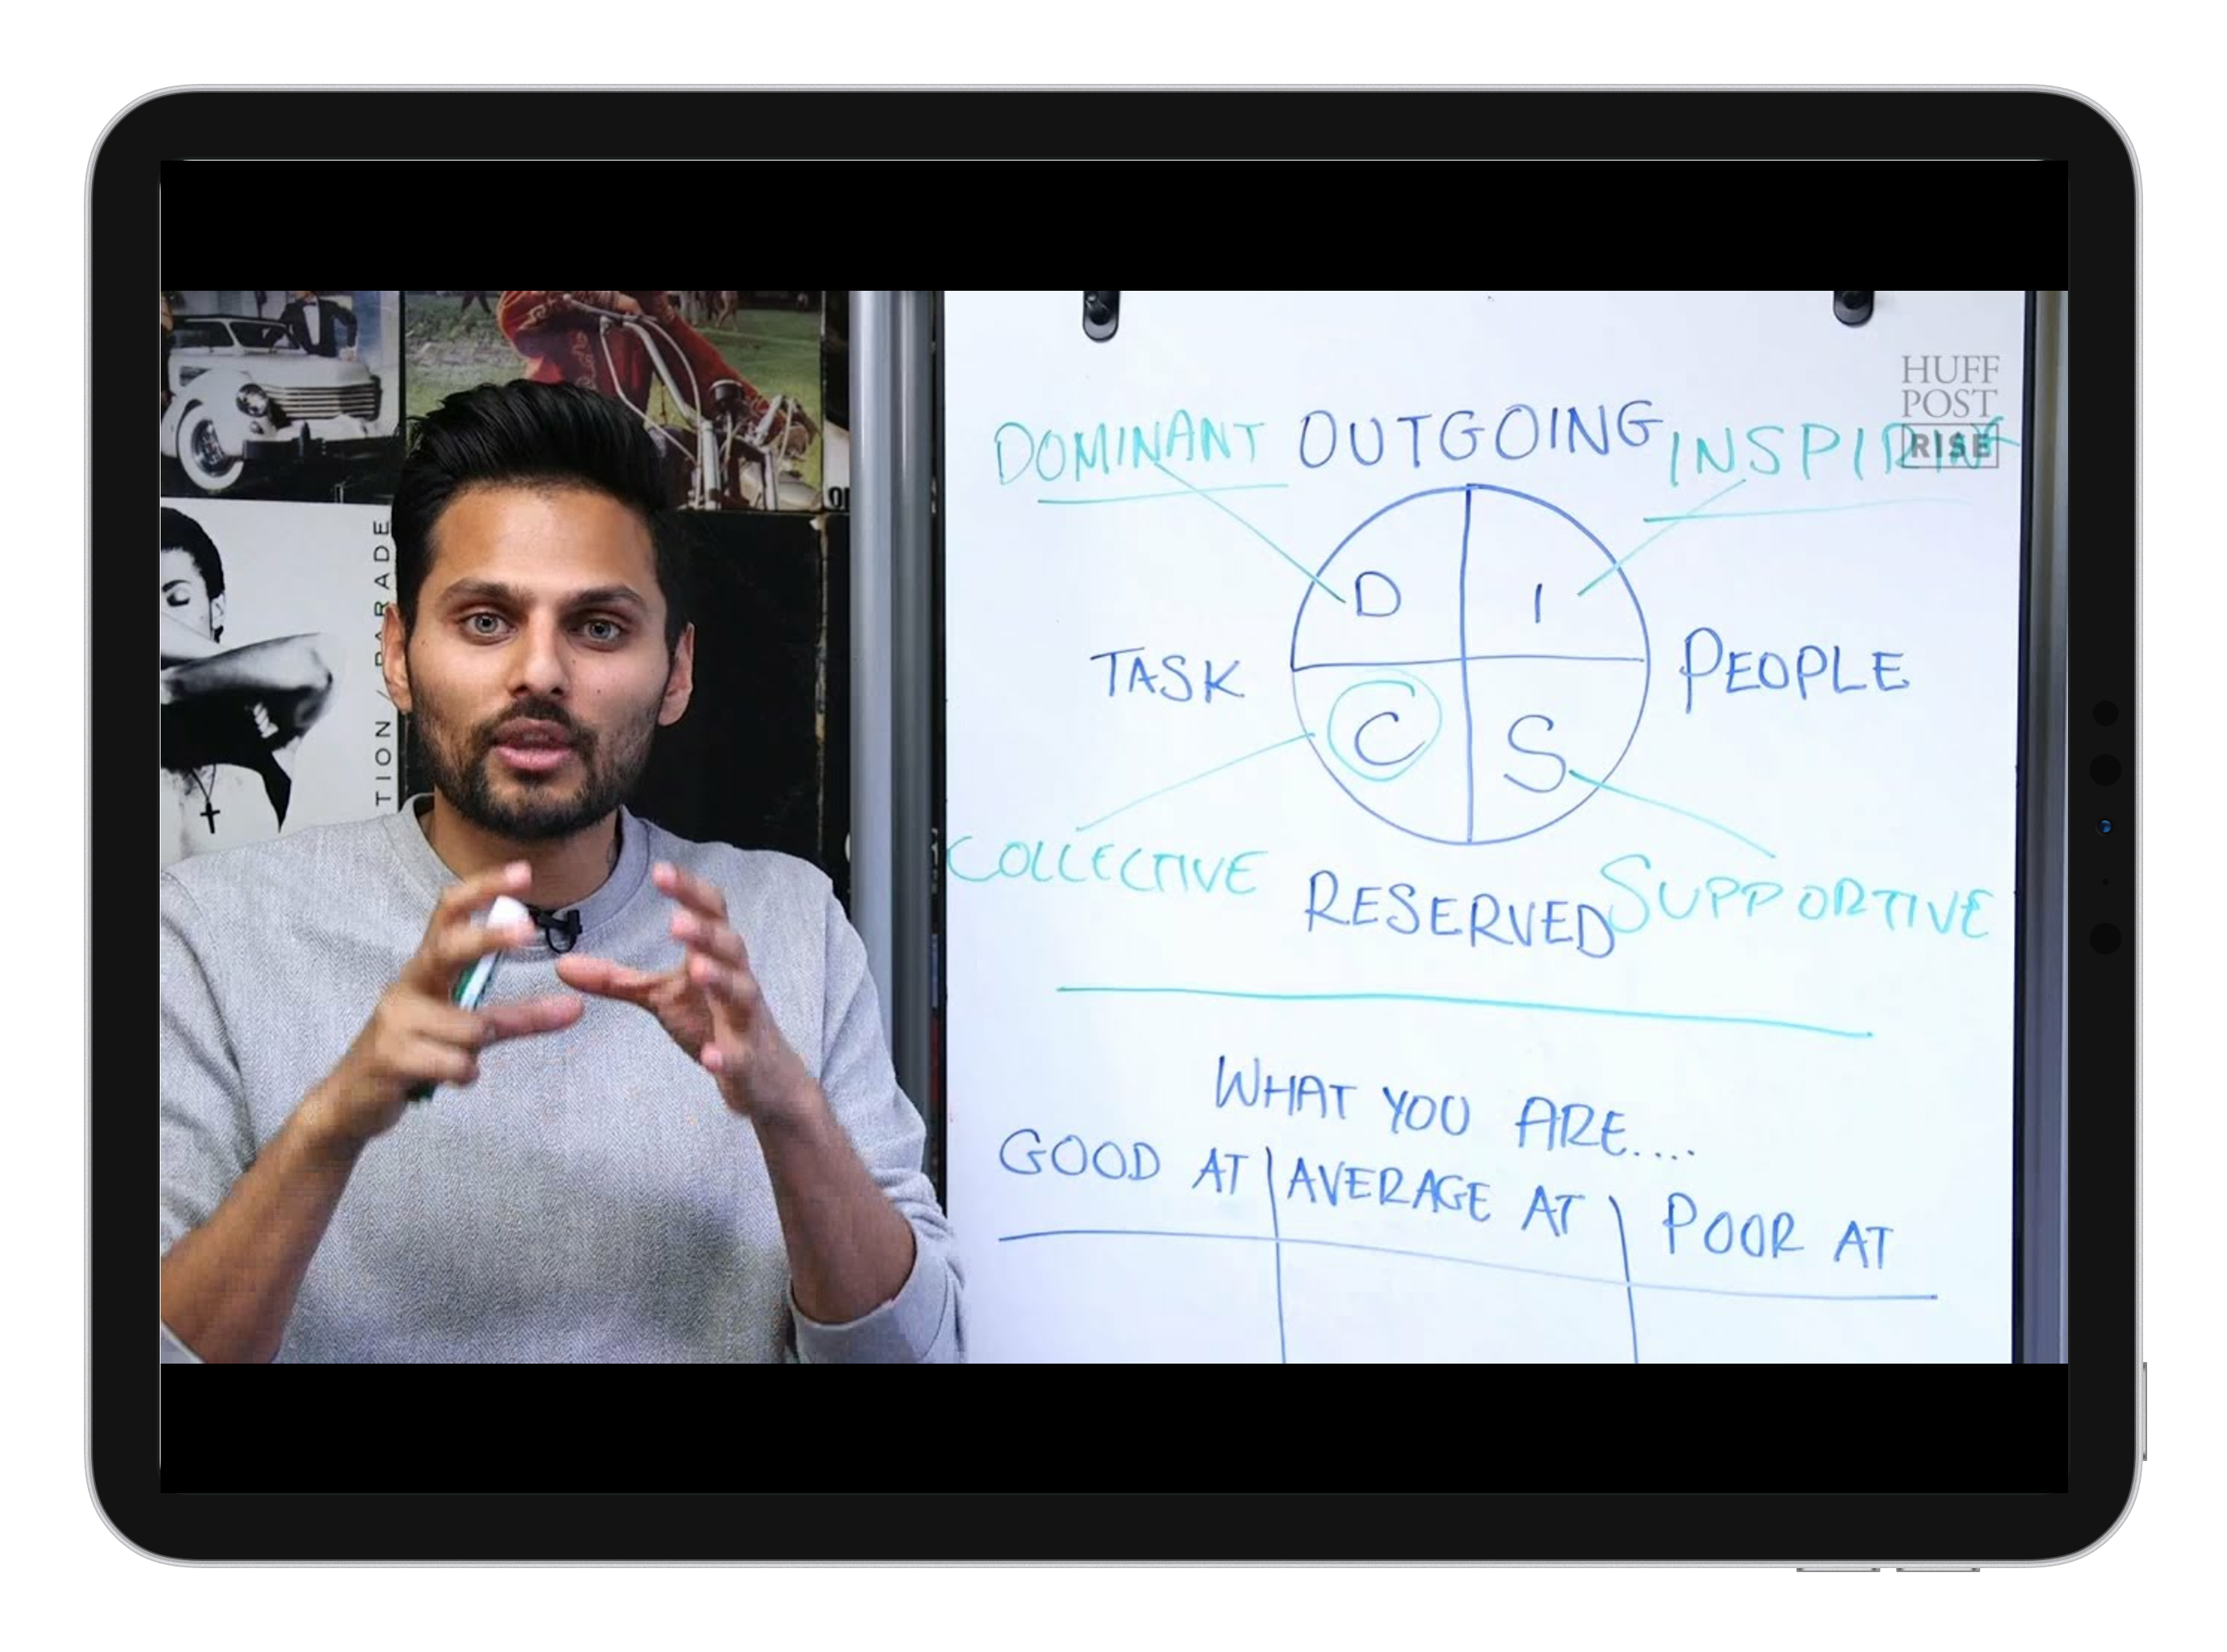 HUFF
POST
RISE
DOMINANT OUTGOING INSPIRING
D I
TASK PEOPLE
C S
COLLECTIVE RESERVED SUPPORTIVE
WHAT YOU ARE....
GOOD AT AVERAGE AT POOR AT
TION / PARADE